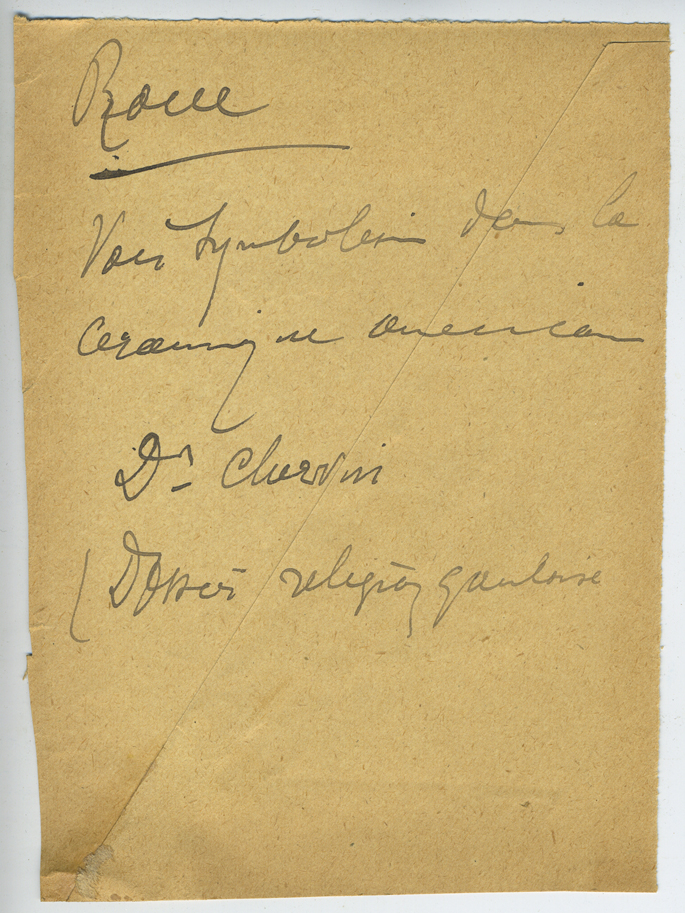 Roue
Voir Symbolisme dans la
Ceramique americaine
Dr Chervin
(Dossier religion gauloise